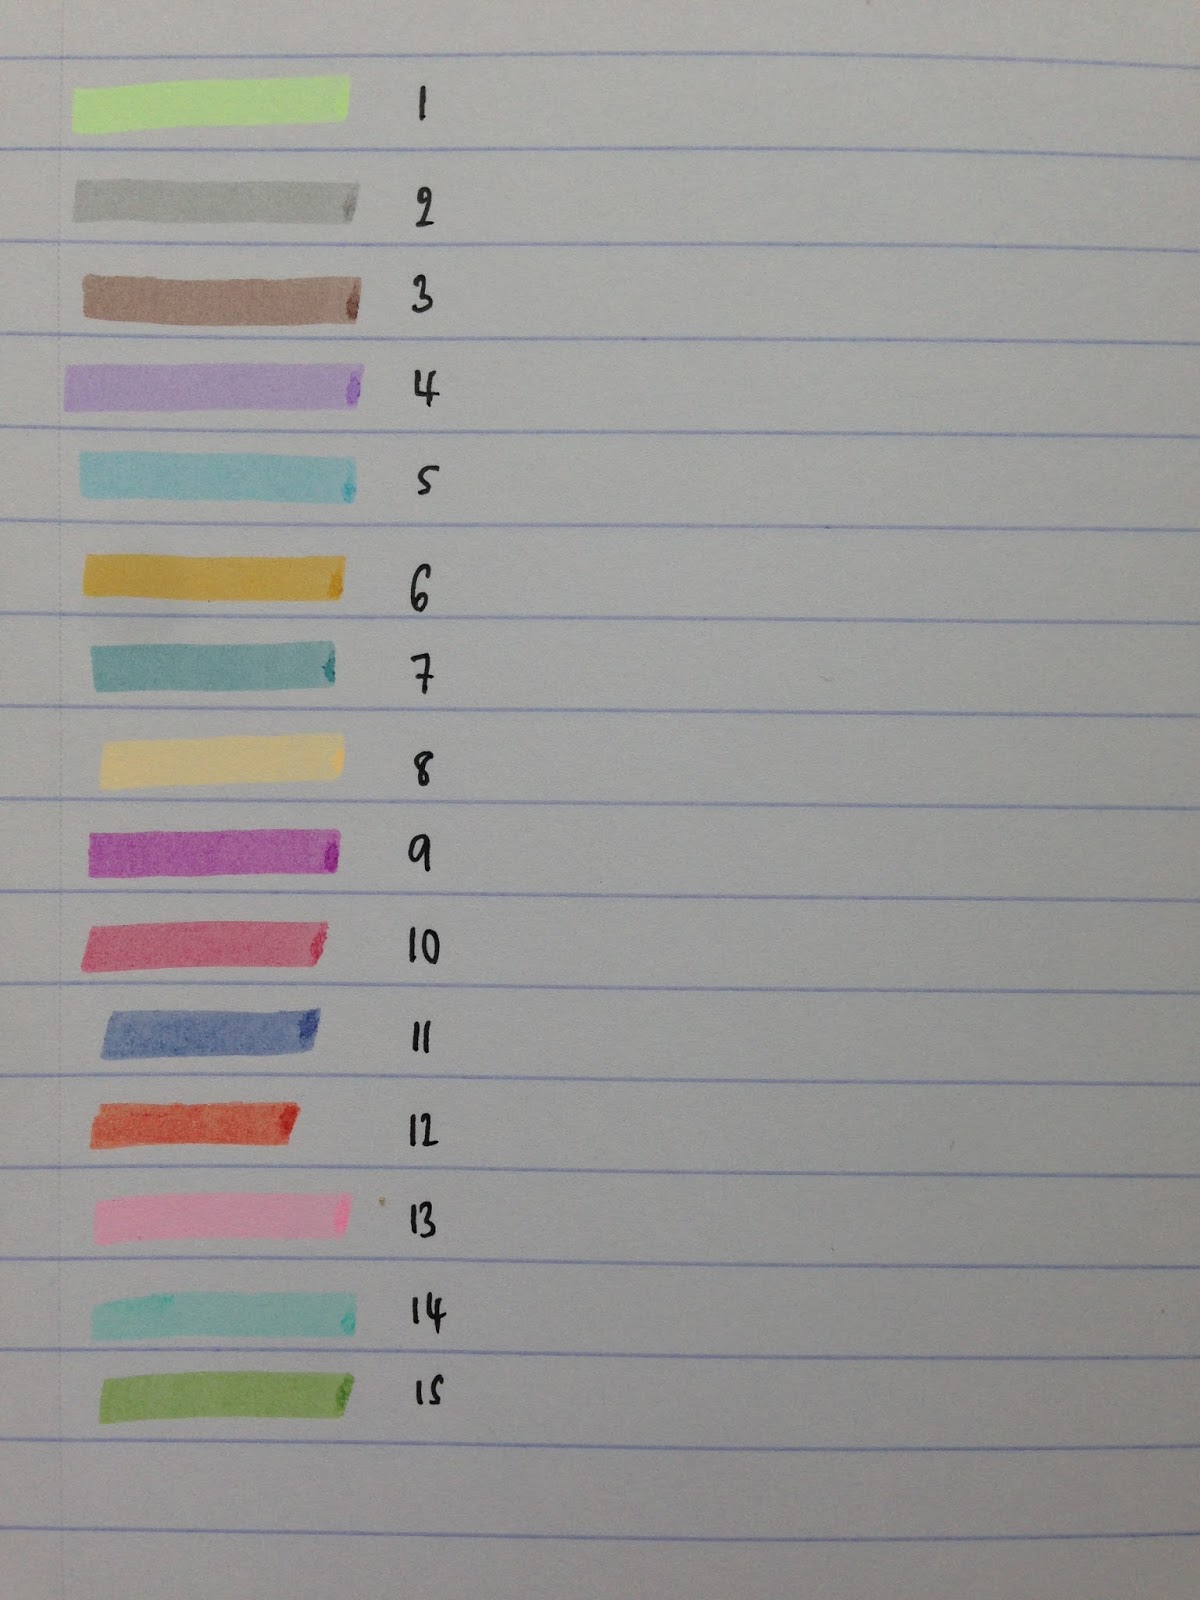 1
2
3
4
5
6
7
8
9
10
11
12
13
14
15